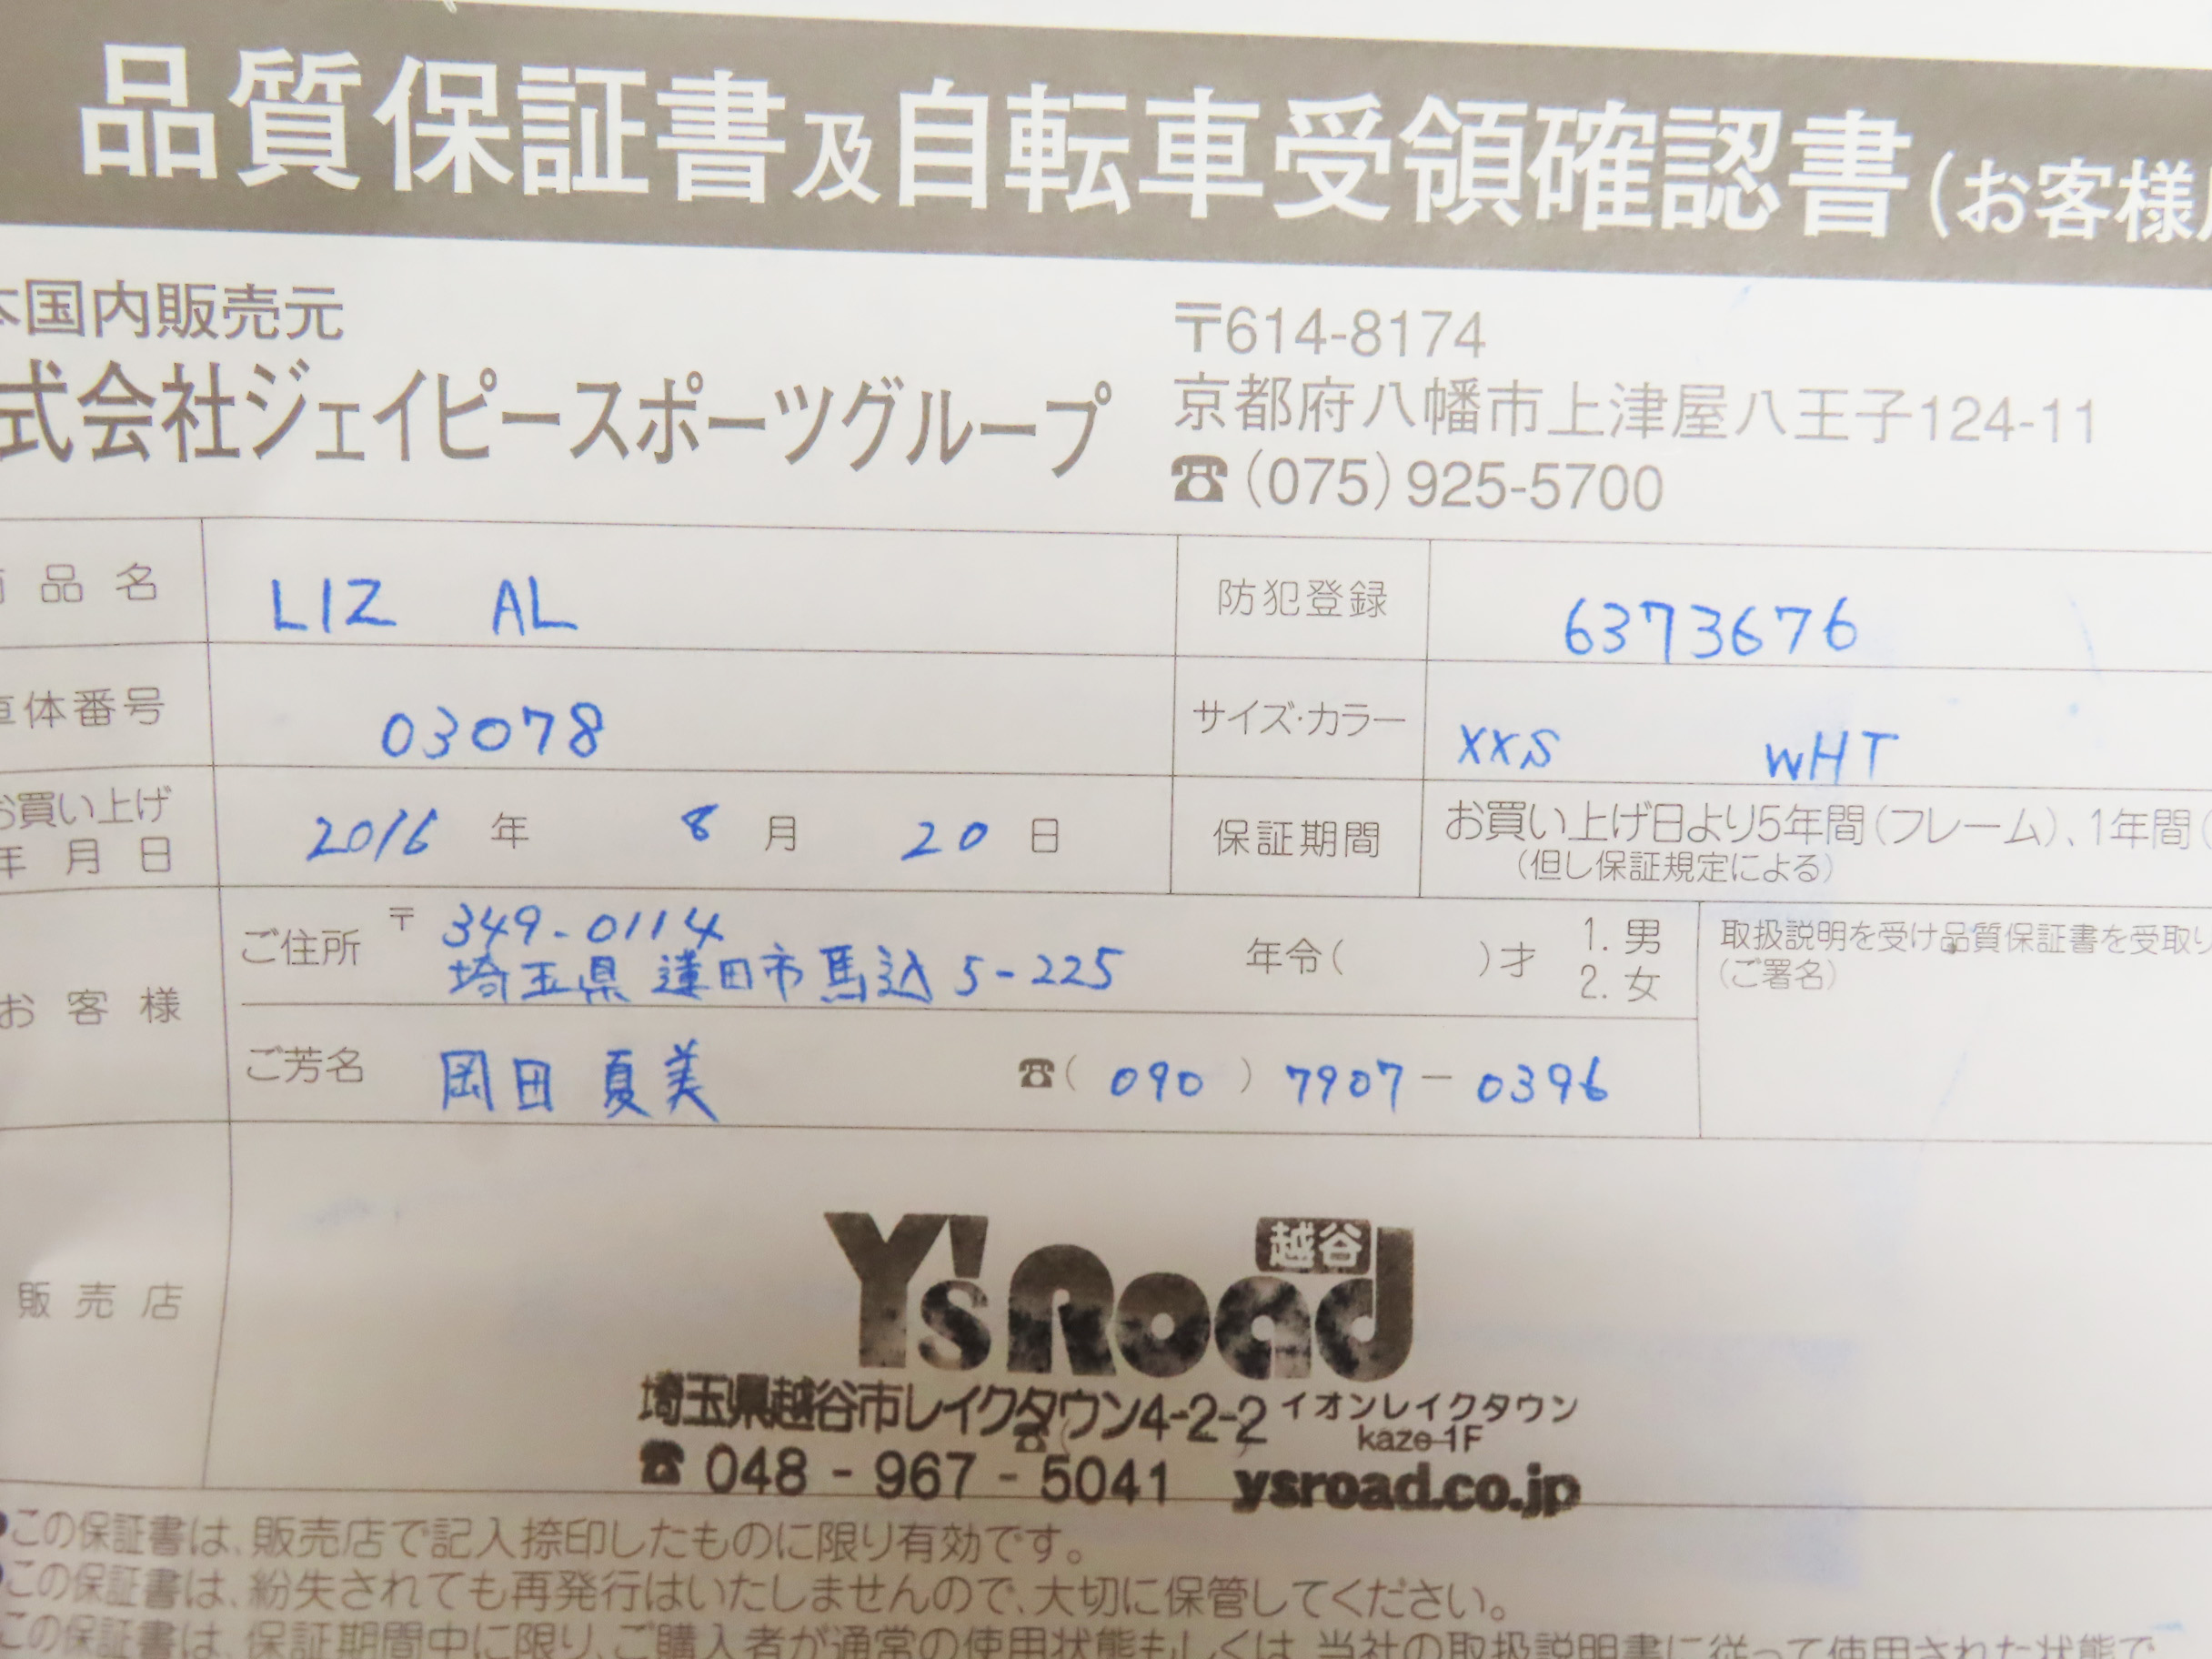 品質保証書及自転車受領確認書(お客様
本国内販売元
式会社ジェイピースポーツグループ
〒614-8174
京都府八幡市上津屋八王子124-11
☎(075)925-5700
品名 LIZ AL 防犯登録 6373676
車体番号 03078 サイズ・カラー XXS WHT
お買い上げ
年月日 2016年 8月 20日 保証期間 お買い上げ日より5年間(フレーム)、1年間(
(但し保証規定による)
お客様 ご住所 〒349-0114
埼玉県 蓮田市馬込5-225 年令( )才 1. 男
2. 女
取扱説明を受け品質保証書を受取り
(ご署名)
ご芳名 岡田 夏美 ☎(090)7907-0396
販売店
Y'sRoad 越谷
埼玉県越谷市レイクタウン4-2-2 イオンレイクタウン
kaze 1F
☎ 048-967-5041 ysroad.co.jp
●この保証書は、販売店で記入捺印したものに限り有効です。
●この保証書は、紛失されても再発行はいたしませんので、大切に保管してください。
この保証書は、保証期間中に限り、ご購入者が通常の使用状態もしくは、当社の取扱説明書に従って使用された状態で